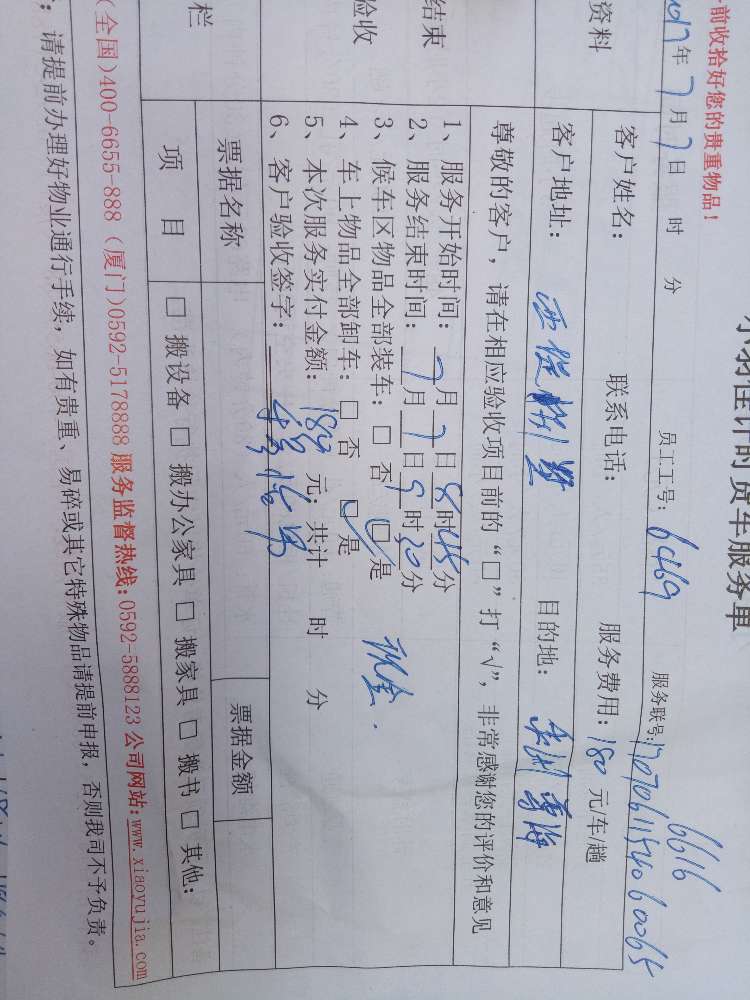 前收拾好您的贵重物品！
计时货车服务单
2017年7月7日 时 分 员工工号：6469 服务联号：1707061154060065
6616
资料
客户姓名： 联系电话： 服务费用：180 元/车/趟
客户地址： 目的地：
尊敬的客户，请在相应验收项目前的“□”打“√”，非常感谢您的评价和意见
结束
验收
栏
1、服务开始时间：7月7日8时45分
2、服务结束时间：7月7日9时20分
3、候车区物品全部装车：□否 □是
4、车上物品全部卸车：□否 □是
5、本次服务实付金额：180元；共计 时 分
现金.
6、客户验收签字：
票据名称 票据金额
项 目 □ 搬设备 □ 搬办公家具 □ 搬家具 □ 搬书 □ 其他：
(全国)400-6655-888 (厦门)0592-5178888 服务监督热线：0592-5888123 公司网站：www.xiaoyujia.com
：请提前办理好物业通行手续，如有贵重、易碎或其它特殊物品请提前申报，否则我司不予负责。